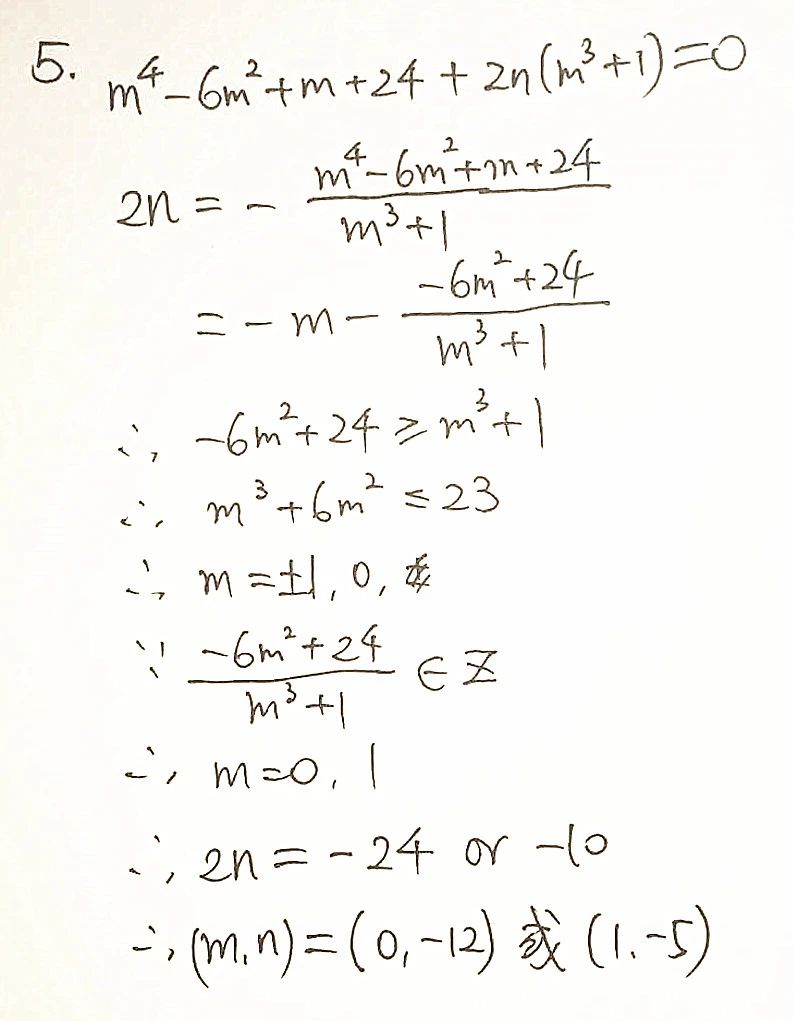 5. m⁴-6m²+m+24+2n(m³+1)=0
2n = - (m⁴-6m²+m+24)/(m³+1)
= -m - (-6m²+24)/(m³+1)
∴ -6m²+24 ≥ m³+1
∴ m³+6m² ≤ 23
∴ m=±1, 0,
∵ (-6m²+24)/(m³+1) ∈ Z
∴ m=0, 1
∴ 2n = -24 or -10
∴ (m,n)=(0,-12) 或 (1,-5)